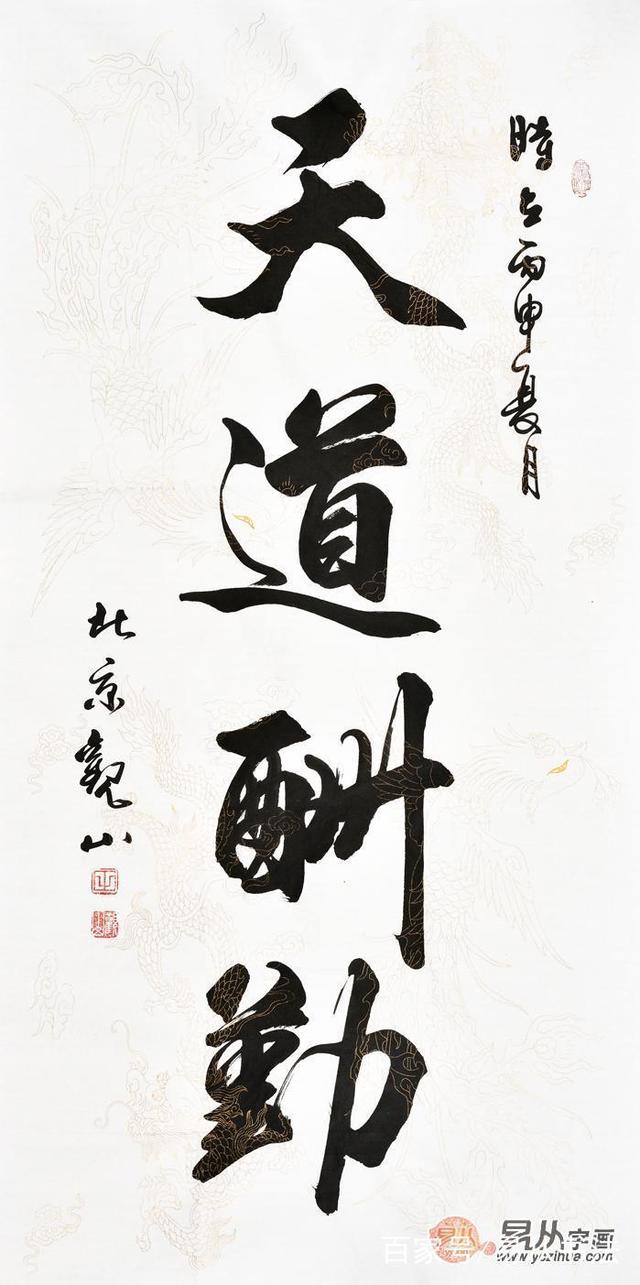 時在丙申夏月
天道酬勤
北京觀山
易从字画
www.yczihua.com
百家号